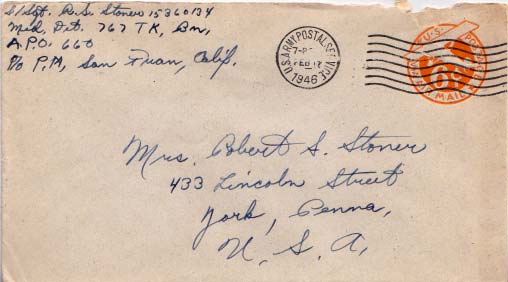 S/Sgt. R.S. Stoner 15360134
Med. Det. 767 TK, Bn,
A.P.O. 660
c/o P.M, San Fran, Calif.
U.S. ARMY POSTAL SERVICE
7-P
FEB 12
1946
U.S. POSTAGE
6¢
VIA AIR MAIL
Mrs. Robert S. Stoner
433 Lincoln Street
York, Penna,
U. S. A,